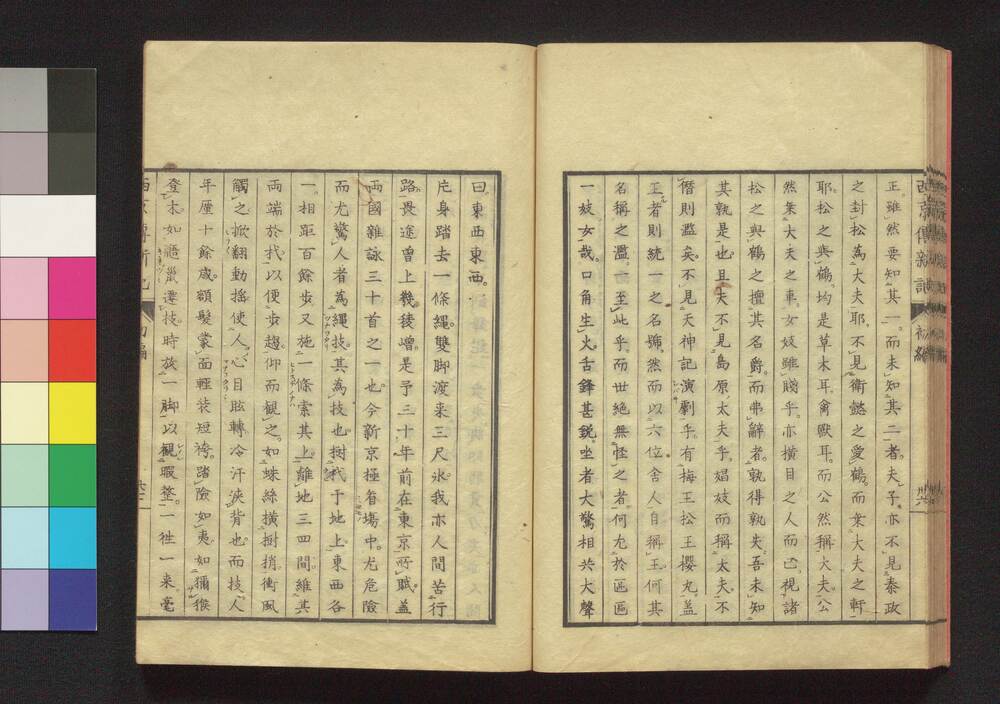 正。雖然要知其一。而未知其二者。夫子。亦不見秦政
之封松為大夫耶。不見衛懿之愛鶴。而乗大夫之軒
耶。松之與鶴。均是草木耳。禽獸耳。而公然稱大夫。公
然乗大夫之車。女妓雖賤乎。亦横目之人而已。視諸
松之與鶴之擅其名爵。而弗辭者。孰得孰失。吾未知
其孰是也。且夫不見島原太夫乎。娼妓而稱太夫。不
僭則濫矣。不見天神記演劇乎。有梅王松王櫻丸。盖
王者則統一之名號。然而以六位舍人自稱王。何其
名稱之濫。一至此乎。而世絶無怪之者。何尤於區區
一妓女哉。口角生火。舌鋒甚鋭。坐者大驚。相共大聲
西京傳新記 初編 廿六
曰。東西東西。
片身踏去一條繩。雙脚渡来三尺氷。我亦人間苦行
路。畏途曾上幾稜嶒。是予三十年前在東京所賦。盖
両國雜詠三十首之一也。今新京極育塲中。尤危險
而尤驚人者為繩技。其為技也。樹杙于地上東西各
一。相距百餘歩。又施一條索其上。離地三四間。維其
両端於杙。以便歩趨。仰而観之。如蛛絲横樹梢。衝風
觸之。掀翻動揺。使人心目眩轉。冷汗浹背也。而技人
年厪十餘歳。額髮蒙面。輕装短袴。踏險如夷。如獼猴
登木。如鼯鼠遷技。時放一脚。以観暇整。一往一来。毫